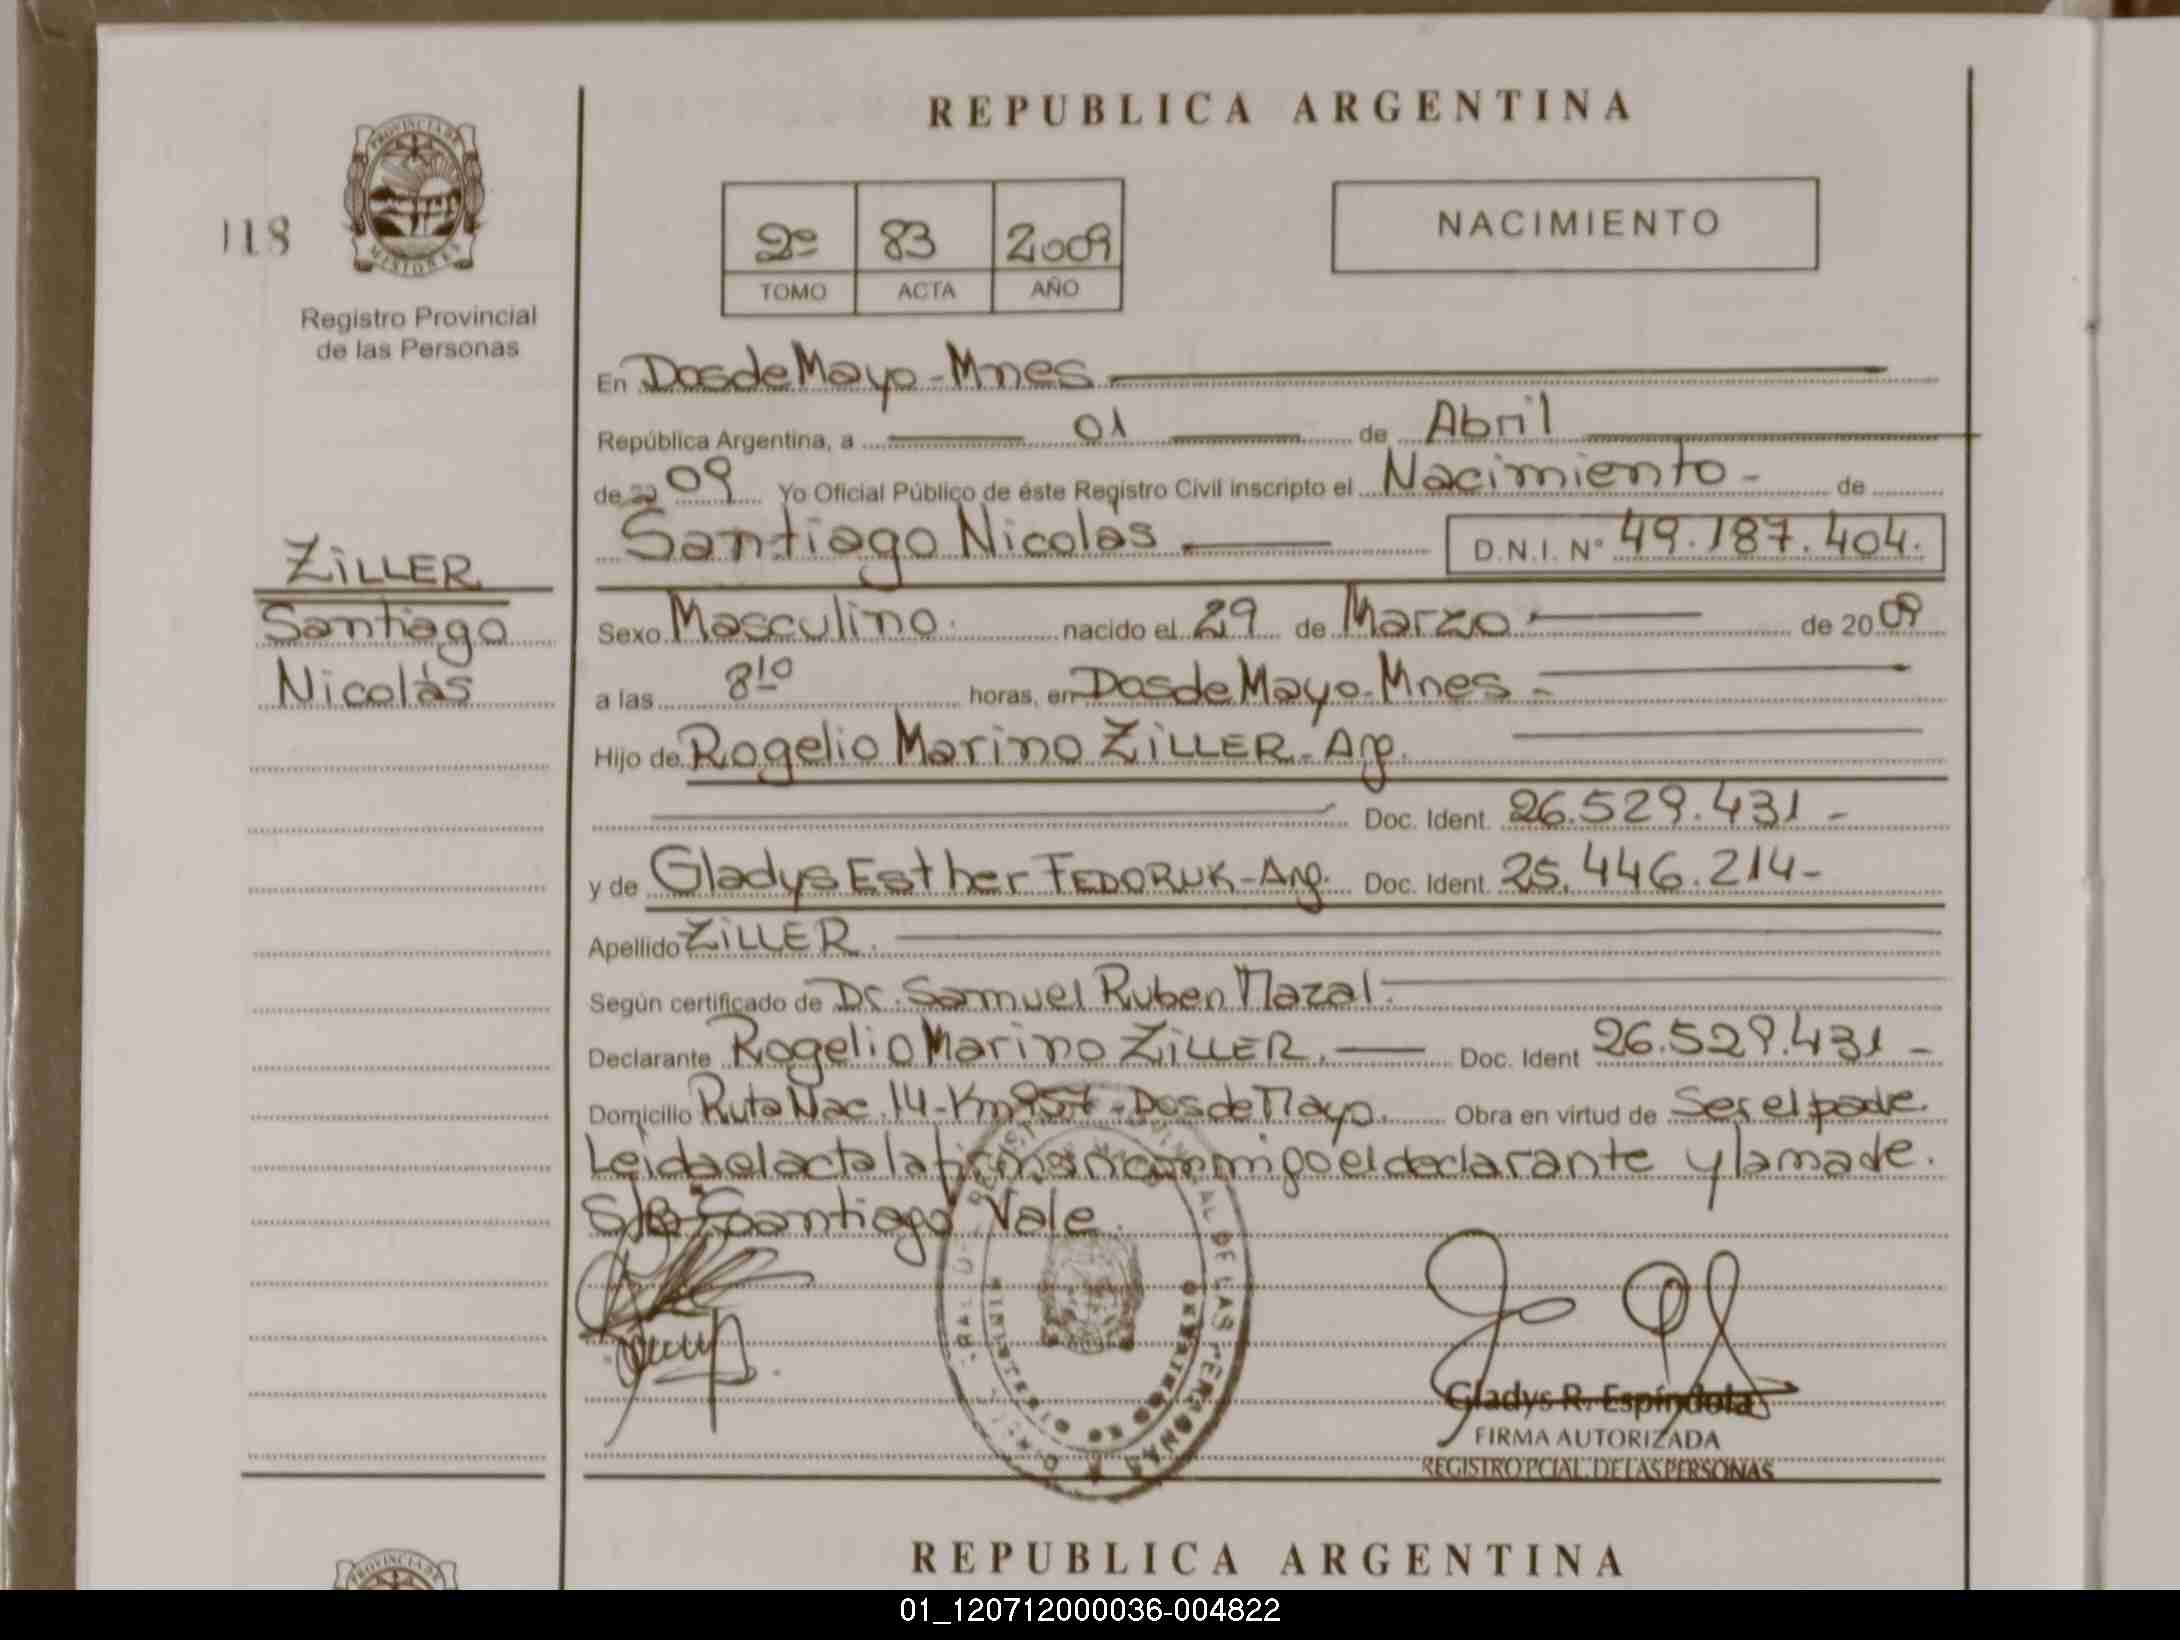 REPUBLICA ARGENTINA
118
PROVINCIA DE
MISIONES
Registro Provincial
de las Personas
2º 83 2009
TOMO ACTA AÑO
NACIMIENTO
En Dos de Mayo - Mnes
República Argentina, a 01 de Abril
de 20 09 Yo Oficial Público de éste Registro Civil inscripto el Nacimiento - de
Santiago Nicolás D.N.I. N° 49.187.404.
ZiLLER
Santiago
Nicolás
Sexo Masculino. nacido el 29 de Marzo de 2009
a las 8 10 horas, en Dos de Mayo - Mnes -
Hijo de Rogelio Marino ZiLLER - Arg.
Doc. Ident. 26.529.431 -
y de Gladys Esther FEDORUK - Arg. Doc. Ident. 25.446.214 -
Apellido ZiLLER.
Según certificado de Dr. Samuel Ruben Mazal.
Declarante Rogelio Marino ZiLLER. Doc. Ident 26.529.431 -
Domicilio Ruta Nac. 14 - Km 957 - Dos de Mayo. Obra en virtud de Ser el padre.
Leida el acta la firman conmigo el declarante y la madre.
S/B Santiago Vale.
Gladys R. Espíndola
FIRMA AUTORIZADA
REGISTRO PCIAL. DE LAS PERSONAS
REPUBLICA ARGENTINA
01_120712000036-004822